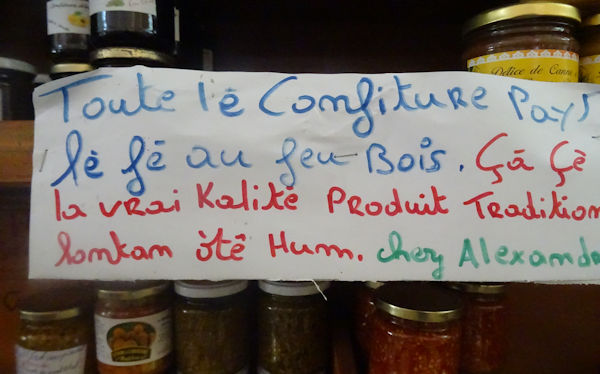 Toute lé Confiture Pays
lé fé au feu Bois. Çà Çé
la vrai Kalité Produit Tradition
lontan ôté Hum. chez Alexand
Délice de Canne